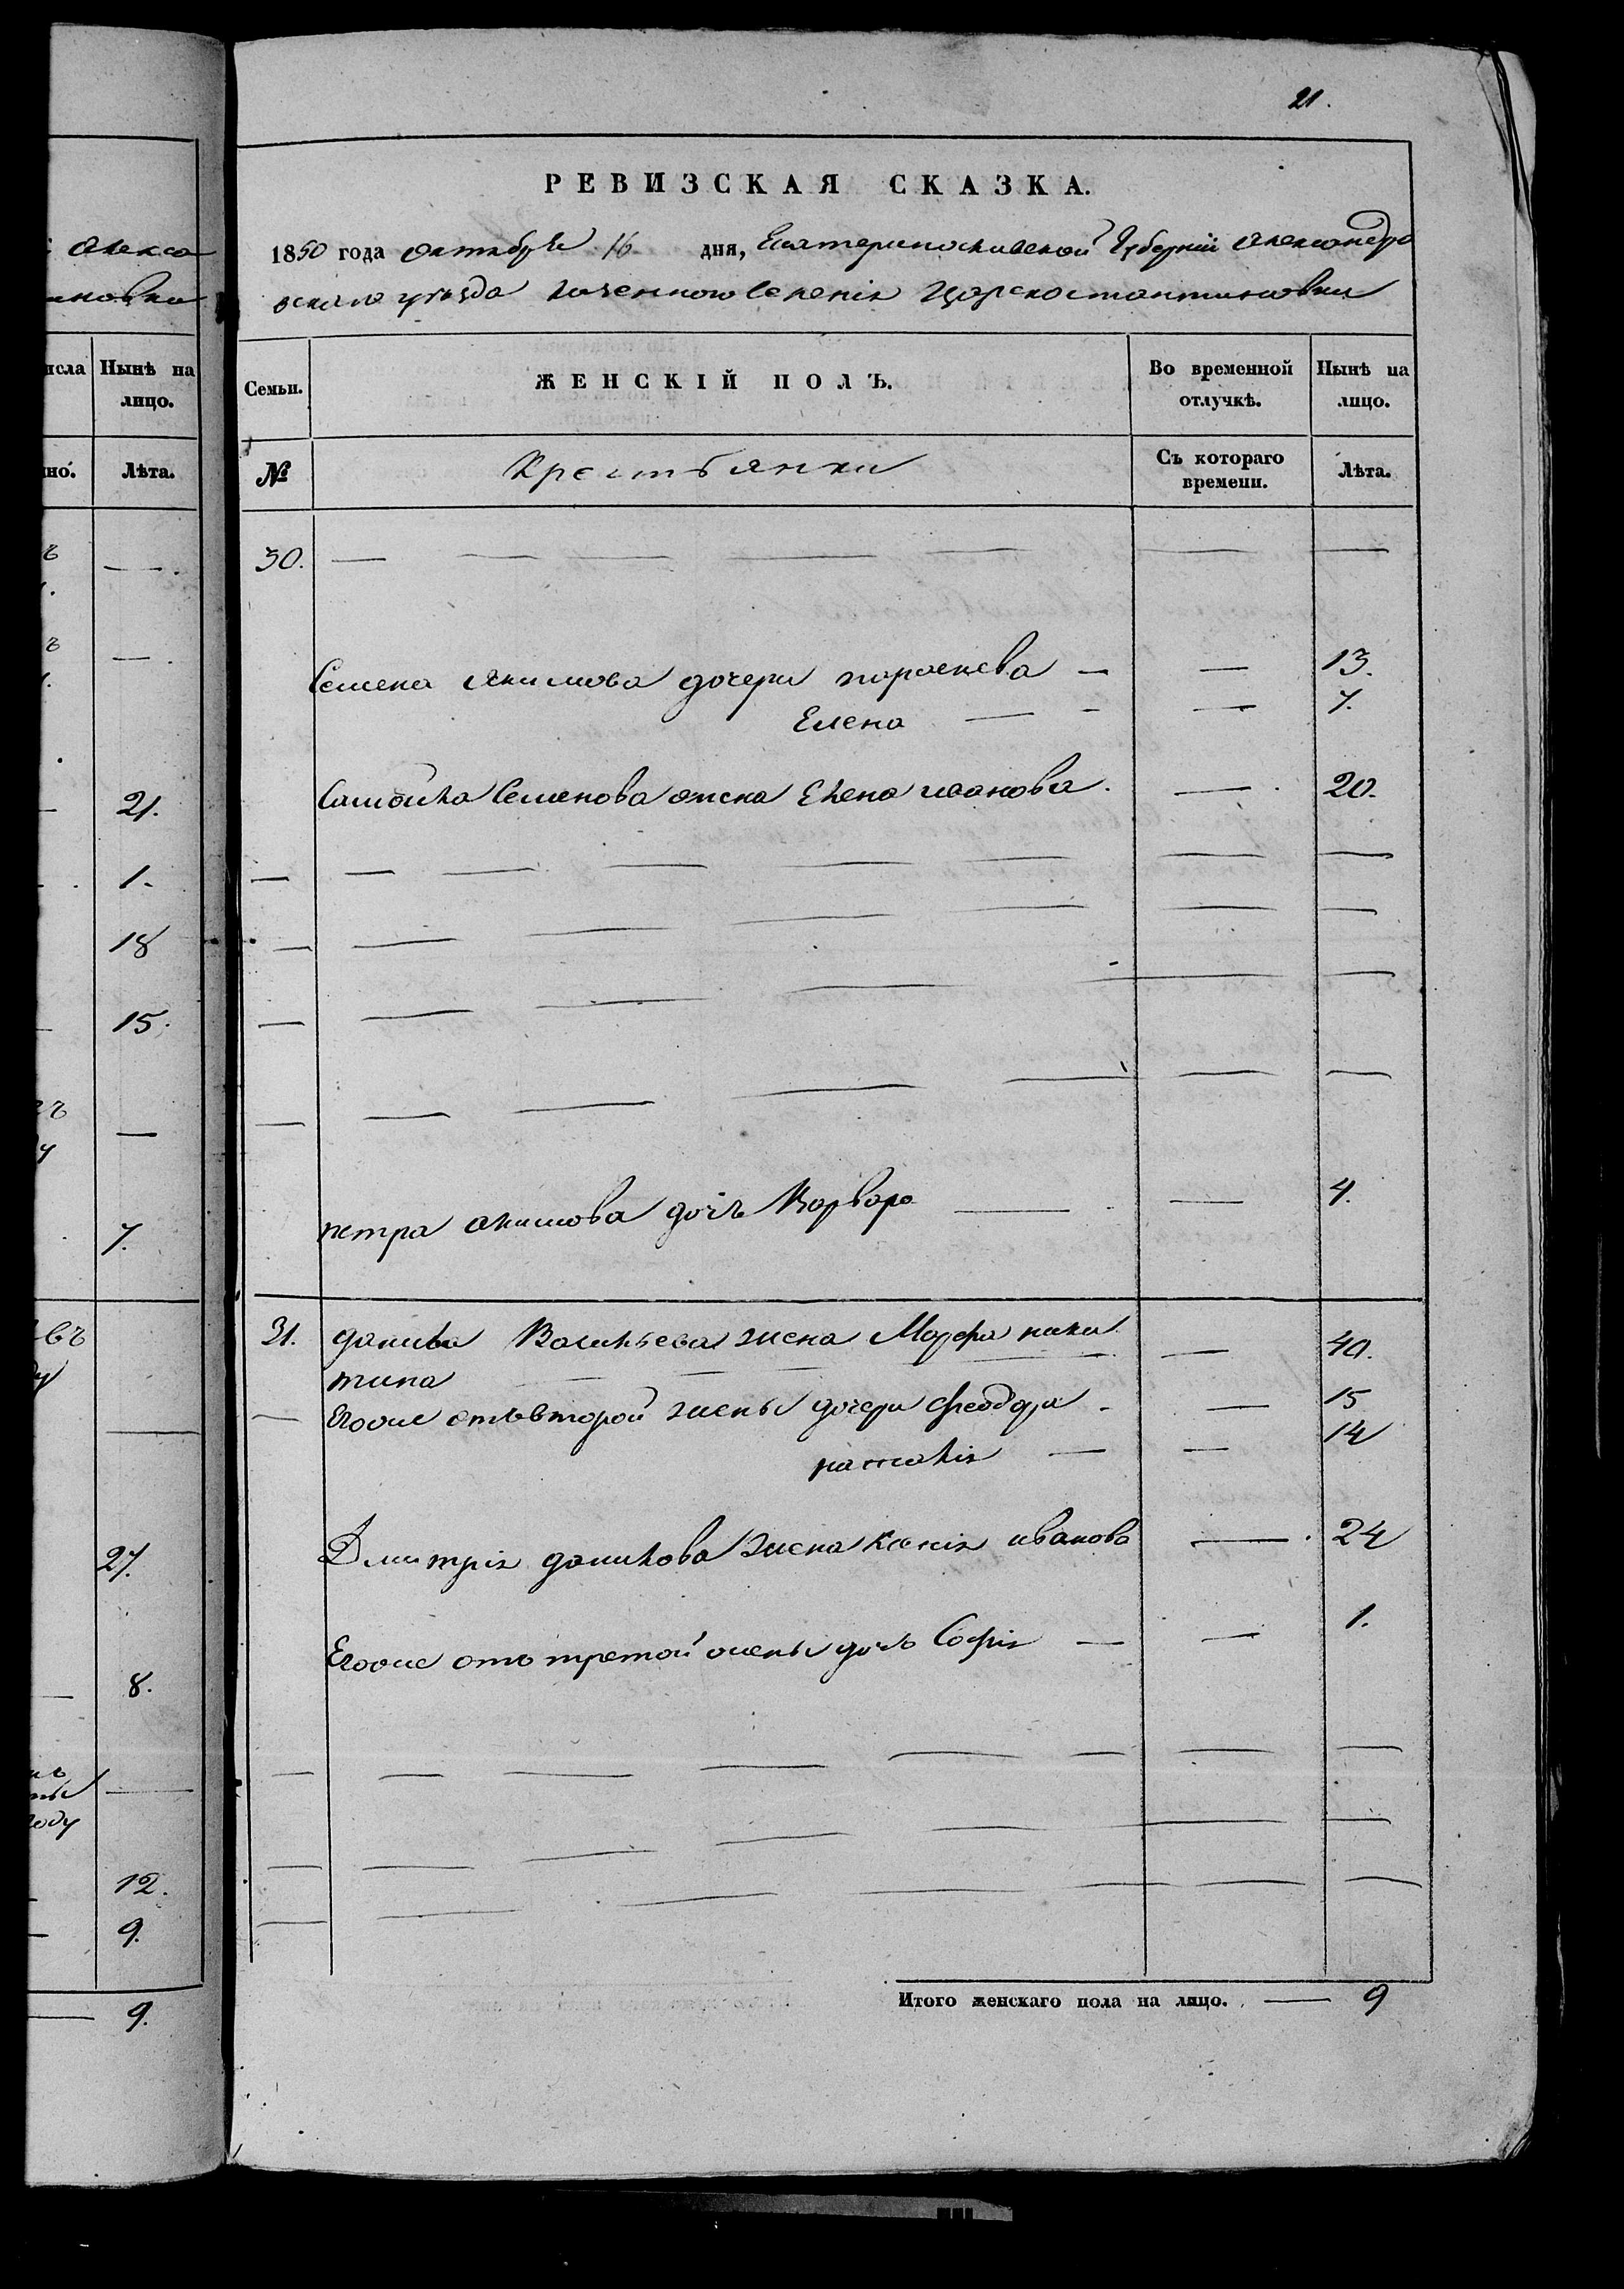 21.
РЕВИЗСКАЯ СКАЗКА.
1850 года октября 16 дня, Екатеринославской Губернии Александро
вскаго уезда казенного Селения Царскостантиновки
Семьи.
ЖЕНСКІЙ ПОЛЪ.
Во временной отлучкѣ.
Нынѣ на лицо.
№
Крестьянки
Съ котораго времени.
Лѣта.
30. — — — — — — —
Семена Якимова дочери парасцева — — 13.
Елена — — — 7.
Самойла Семенова жена Елена иванова. — 20.
— — — — — — — —
— — — — — — —
— — — — — —
— — — — — — —
петра акимова дочь Варвара — — 4.
31. данила Васильева жена Марфа ники — 40.
тина — —
— Егоже отъ второй жены дочери Феодора — — 15
наталія — — 14
Дмитрія данилова жена Ксенія иванова — 24
Егоже отъ третой жены дочь Софія — — 1.
— — — — — — — —
— — — — — — —
— — — — — — —
Итого женскаго пола на лицо. — 9
Алекса
иновки
исла
Нынѣ на
лицо.
но.
Лѣта.
— .
— .
21.
1.
18
15.
—
7.
въ
—
27.
8.
—
году
12.
9.
— 9.